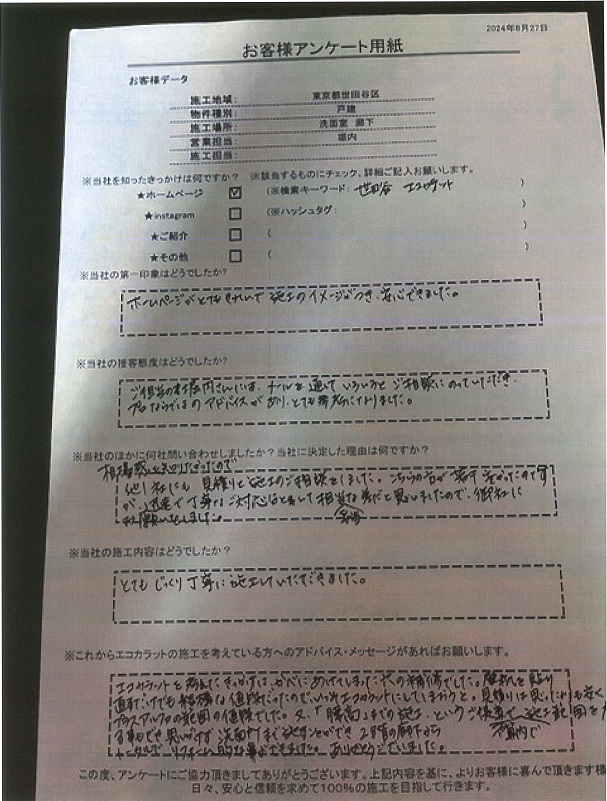 2024年8月27日
お客様アンケート用紙
お客様データ
施工地域: 東京都世田谷区
物件種別: 戸建
施工場所: 洗面室 廊下
営業担当: 堀内
施工担当:
※当社を知ったきっかけは何ですか? ※該当するものにチェック、詳細ご記入お願いします。
★ホームページ ☑ (※検索キーワード: 世田谷 エコカラット )
★instagram □ (※ハッシュタグ: )
★ご紹介 □ ( )
★その他 □ ( )
※当社の第一印象はどうでしたか?
ホームページがとてもきれいで施工のイメージがつき、安心できました。
※当社の接客態度はどうでしたか?
ご担当の堀内さんには、メールを通していろいろとご相談にのっていただき、
プロならではのアドバイスがあり、とても参考になりました。
※当社のほかに何社問い合わせしましたか?当社に決定した理由は何ですか?
相場感を知りたかったので
他1社にも見積りと施工のご相談をしました。こちらの方が若干高かったのです
が、迅速で丁寧なご対応 相当な差だと思いましたので、御社に
お願いしました。
※当社の施工内容はどうでしたか?
とてもじっくり丁寧に施工していただきました。
※これからエコカラットの施工を考えている方へのアドバイス・メッセージがあればお願いします。
エコカラットを考えたきっかけは、かべにあけてしまった穴の補修でした。壁紙を貼り
直すだけでも結構な値段だったので、いっそエコカラットにしてしまおうと。見積りは思ったよりも安く
プラスアルファの範囲の値段でした。又、「腰高」までの施工、というご提案で、施工範囲を
範囲内で
思いがけず洗面所まで施工することができ、2階の廊下から
トータルでリフォーム的な事ができました。ありがとうございました。
この度、アンケートにご協力頂きましてありがとうございます。上記内容を基に、よりお客様に喜んで頂きます様
日々、安心と信頼を求めて100%の施工を目指して行きます。